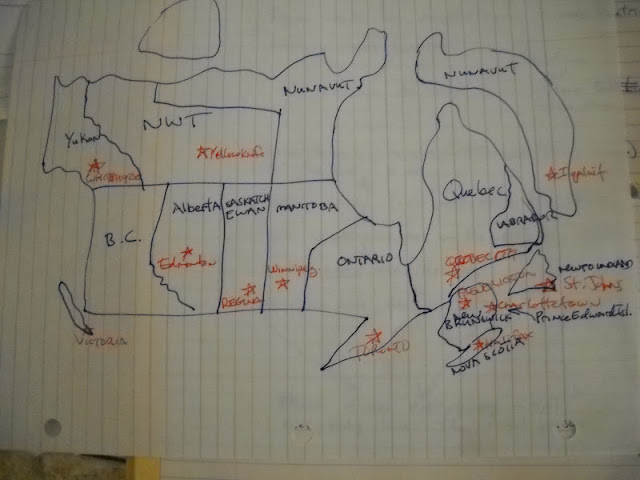 NUNAVUT
NUNAVUT
Yukon
NWT
Yellowknife
Iqaluit
Quebec
LABRADOR
Alberta
SASKATCH
EWAN
MANITOBA
B.C.
ONTARIO
Edmonton
Winnipeg
REGINA
QUEBEC CITY
NEWFOUNDLAND
St. Johns
Charlottetown
NEW
BRUNSWICK
Prince Edward Isl.
VICTORIA
TORONTO
Halifax
NOVA SCOTIA